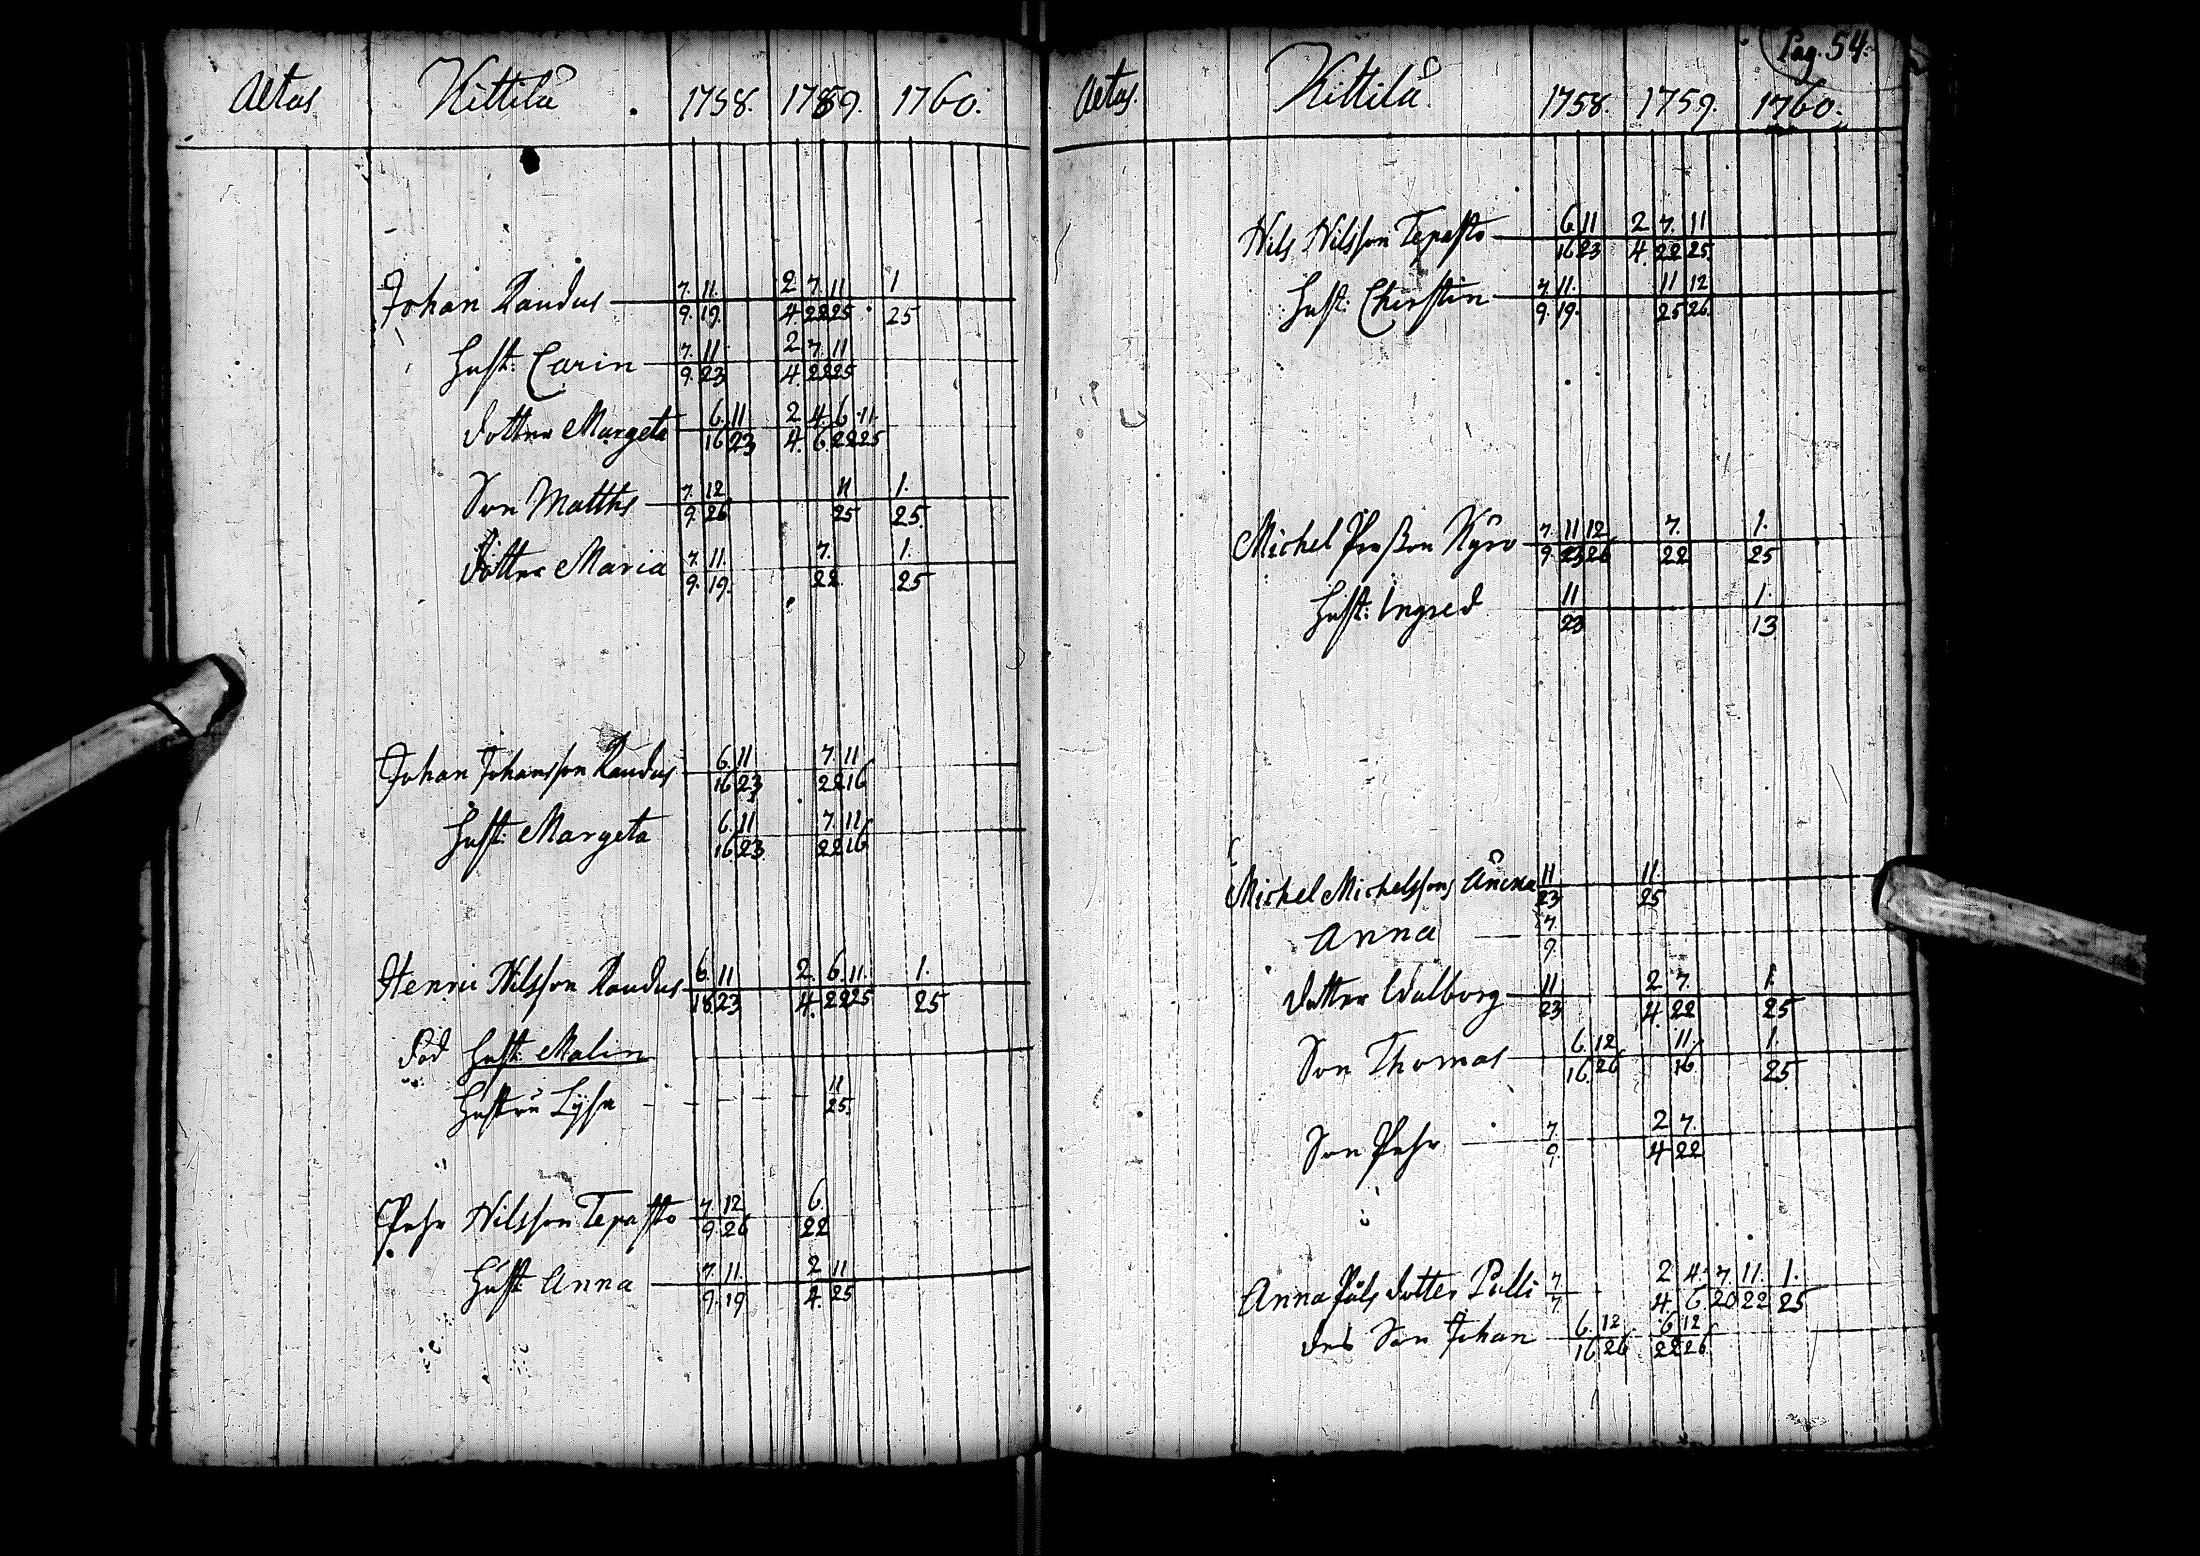 Aetas Kittilä 1758. 1759. 1760.
Johan Raudus 7. 11. 2 7. 11 1
9. 19. 4. 22 25 25
Hust: Carin 7. 11 2 7. 11
9. 23 4. 22 25
dotter Margeta 6. 11 2 4. 6. 11.
16 23 4. 6. 22 25
Son Matths 7. 12 11 1.
9. 26 25 25.
dotter Maria 7. 11. 7. 1.
9. 19. 22. 25
Johan Johansson Raudus 6. 11 7. 11
16 23 22 16
Hust: Margeta 6. 11 7. 11
16 23. 22 16
Henric Nilsson Raudus 6. 11 2. 6. 11. 1.
16. 23 4. 22 25 25
död Hust: Malin
Hustru Lysa 11
25.
Pehr Nilsson Tepasto 7. 12 6.
9. 26 22
Hust: Anna 7. 11. 2 11
9. 19 4. 25
Pag. 54.
Aetas. Kittilä 1758. 1759. 1760.
Nils Nilsson Tepasto 6. 11 2 7. 11
16 23 4. 22 25.
Hust: Cherstin 7. 11. 11 12
9. 19. 25 26.
Michel Persson Kyrö 7. 11 12 7. 1.
9. 23 26 22 25
Hust: Ingred 11 1.
23 13
Michel Michelssons Änkia 11 11.
23 25
Anna 7.
9
dotter Walborg 11 2 7. 1.
23 4. 22 25
Son Thomas 6. 12 11. 1.
16. 26 16 25
Son Pehr 7. 2 7.
9. 4 22
Anna Påls dotter Palli 7 2 4. 7. 11. 1.
7. 4. 6. 20 22 25
des Son Johan 6. 12 6. 12
16 26 22 26